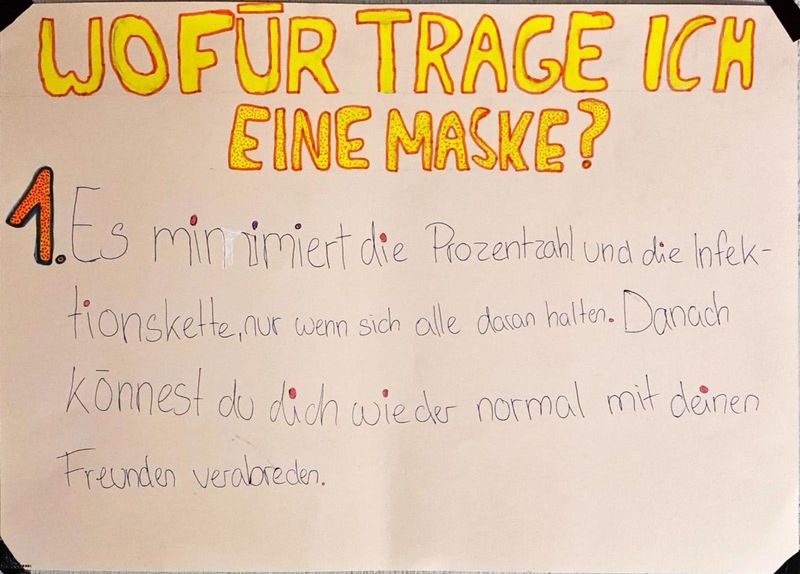 WOFÜR TRAGE ICH
EINE MASKE?
1. Es minnimiert die Prozentzahl und die Infek-
tionskette, nur wenn sich alle daran halten. Danach
könnest du dich wieder normal mit deinen
Freunden verabreden.